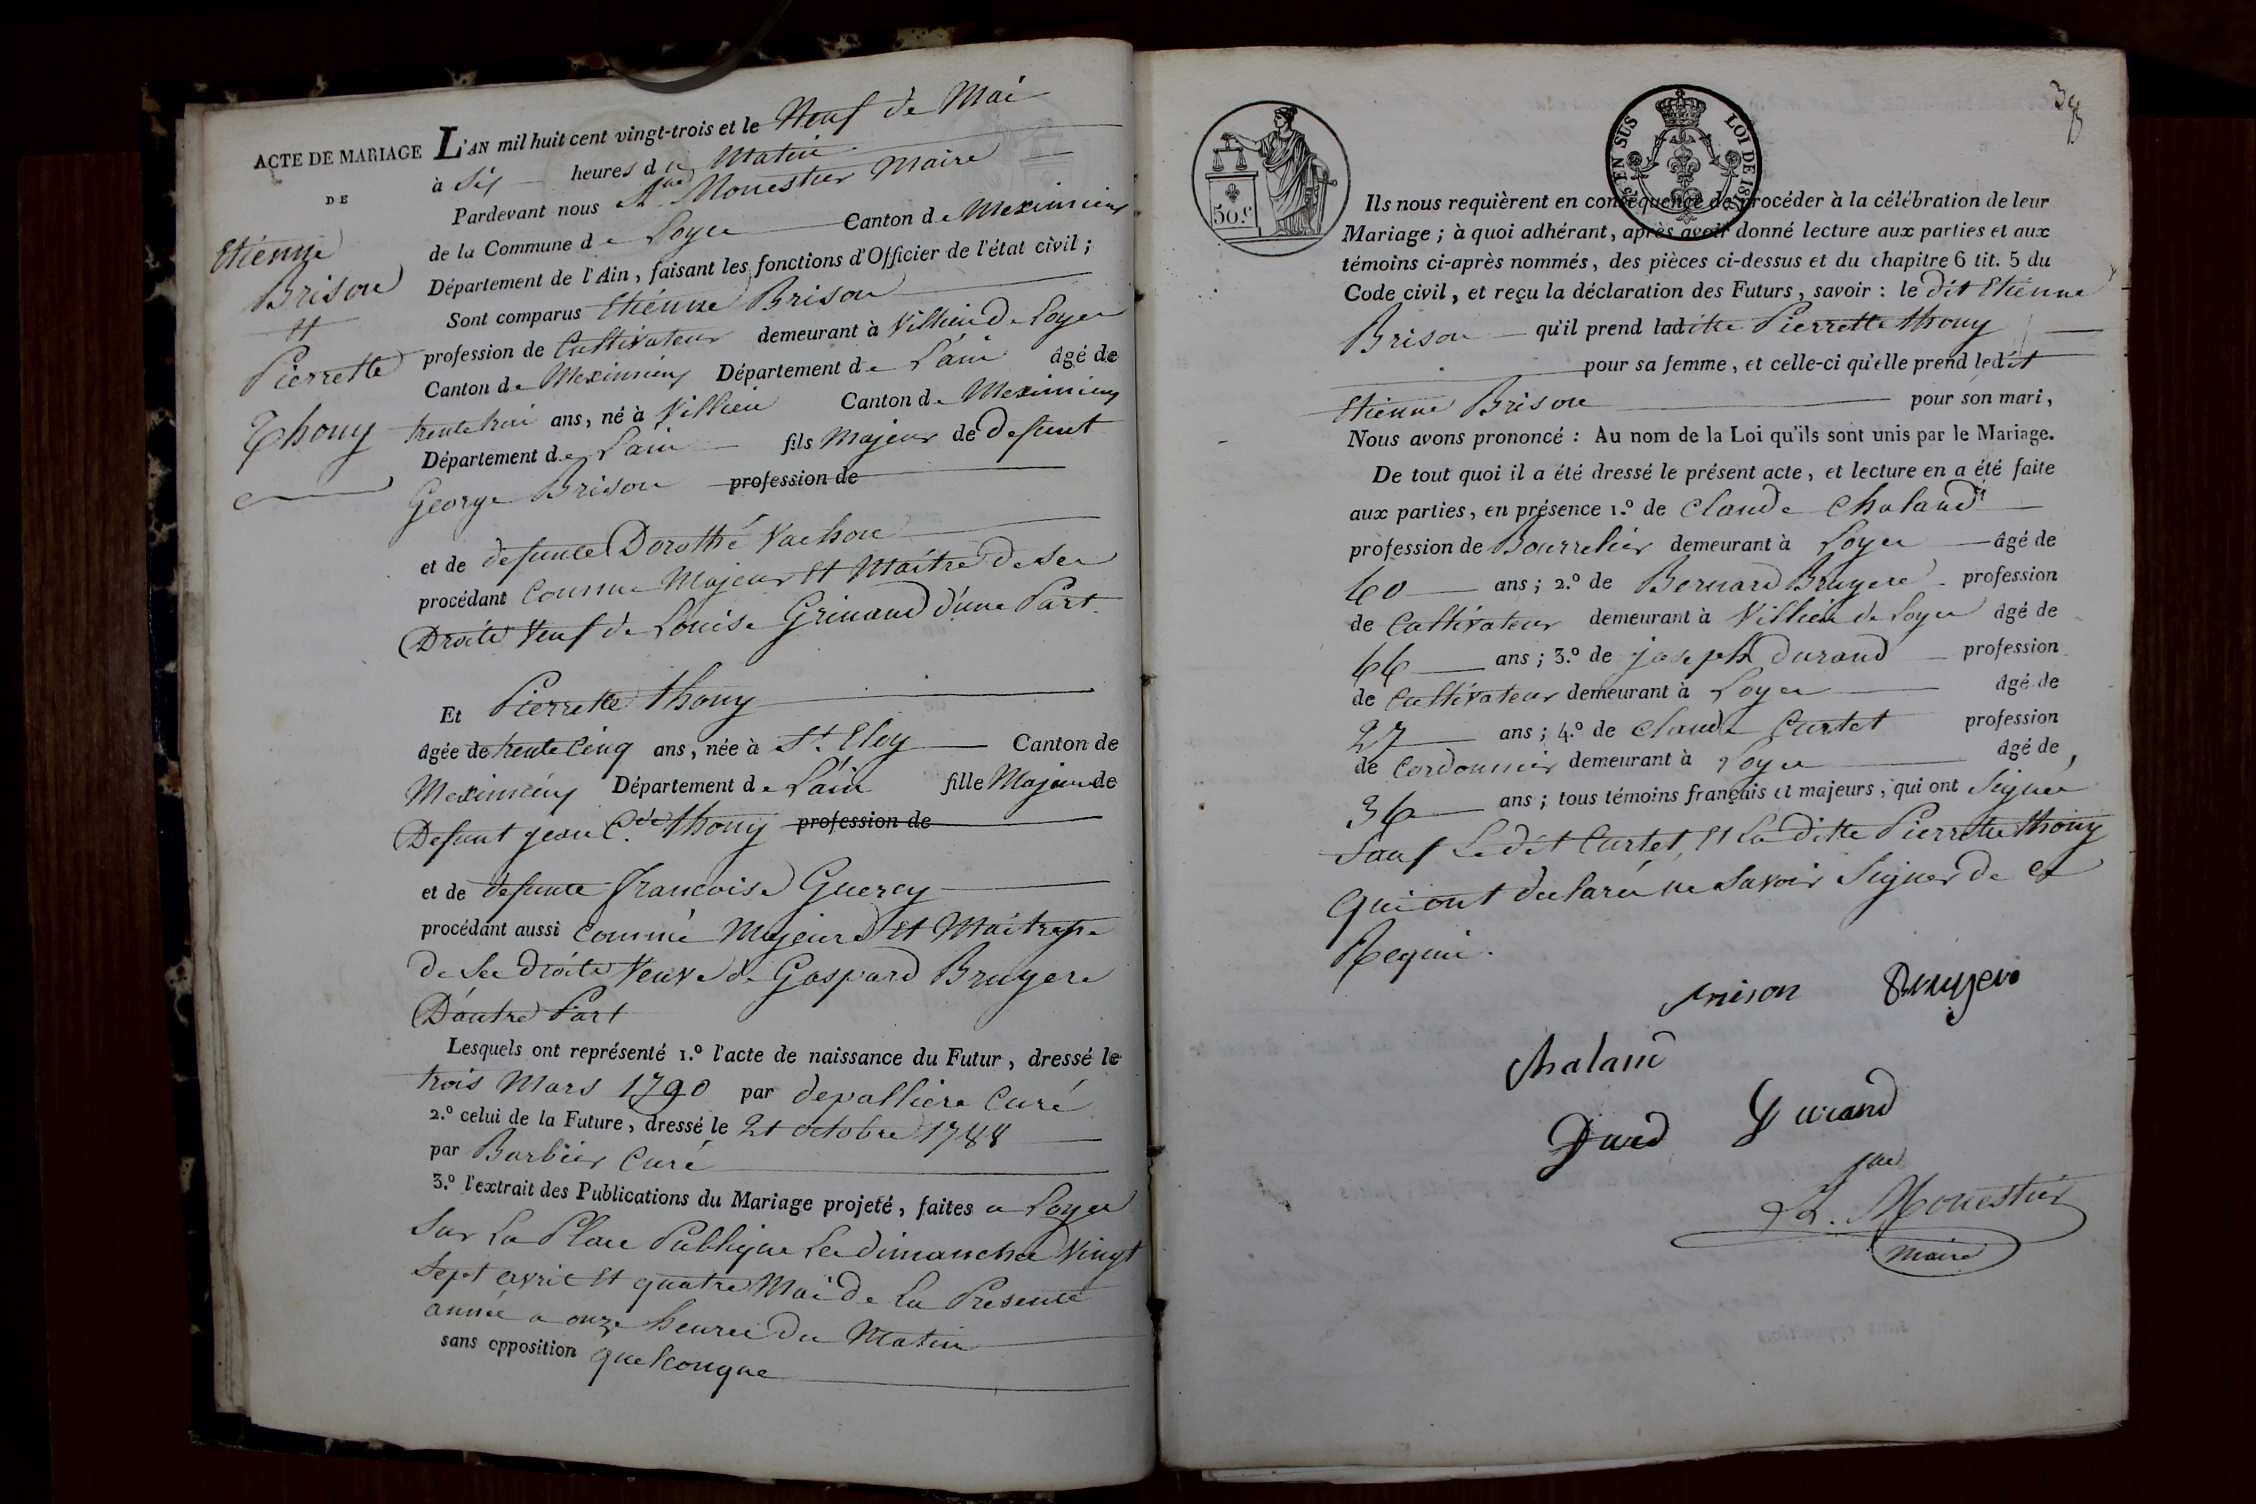 ACTE DE MARIAGE
DE
Etiénne
Brison
et
Pierrette
Thouy
L'AN mil huit cent vingt-trois et le Neuf de Mai
à Six heures du Matin
Pardevant nous Monestier Maire
de la Commune de Loyes Canton de Meximieux
Département de l'Ain, faisant les fonctions d'Officier de l'état civil;
Sont comparus Etiénne Brison
profession de Cultivateur demeurant à Villieu de Loyes
Canton de Meximieux Département de L'ain âgé de
trente trois ans, né à Villieu Canton de Meximieux
Département de L'ain fils Majeur de Defunt
George Brison profession de
et de defunte Dorothé Vachon
procédant Comme Majeur Et Maitre de Ses
Droits Veuf de Louise Grinand d'une Part
Et Pierrette thouy
âgée de trente Cinq ans, née à St. Eloy Canton de
Meximieux Département de L'ain fille Majeure de
Defunt jean Cde thouy profession de
et de defunte francoise Guercy
procédant aussi Comme Majeure Et Maitresse
de Ses droits Veuve de Gaspard Bruyere
D'autre Part
Lesquels ont représenté 1.º l'acte de naissance du Futur, dressé le
trois Mars 1790 par depalliere Curé
2.º celui de la Future, dressé le 21 octobre 1788
par Barbier Curé
3.º l'extrait des Publications du Mariage projeté, faites a Loyes
Sur La Place Publique Les dimanches Vingt
Sept avril Et quatre Mai de La Presente
année a onze heures du Matin
sans opposition quelconque
38
50.c
EN SUS LOI DE 18
Ils nous requièrent en conséquence de procéder à la célébration de leur
Mariage; à quoi adhérant, après avoir donné lecture aux parties et aux
témoins ci-après nommés, des pièces ci-dessus et du chapitre 6 tit. 5 du
Code civil, et reçu la déclaration des Futurs, savoir: le dit Etiénne
Brison qu'il prend ladite Pierrette thouy
pour sa femme, et celle-ci qu'elle prend ledit
Etienne Brison pour son mari,
Nous avons prononcé: Au nom de la Loi qu'ils sont unis par le Mariage.
De tout quoi il a été dressé le présent acte, et lecture en a été faite
aux parties, en présence 1.º de Claude Chaland
profession de Bourrelier demeurant à Loyes âgé de
60 ans; 2.º de Bernard Bruyere profession
de Cultivateur demeurant à Villieu de Loyes âgé de
66 ans; 3.º de joseph durand profession
de Cultivateur demeurant à Loyes âgé de
27 ans; 4.º de Claude Curtet profession
de Cordonnier demeurant à Loyes âgé de
36 ans; tous témoins français et majeurs, qui ont Signés
Sauf Le dit Curtet, Et La ditte Pierrette thouy
Qui ont declaré ne Savoir Signer de ce
Requis.
Brison Bruyere
Chaland
Durand
Monestier
Maire